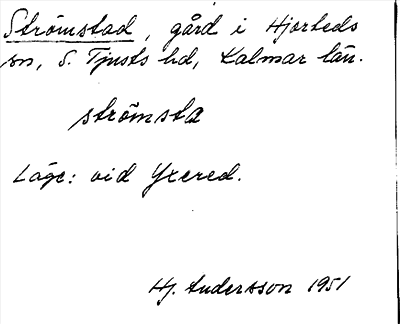 Strömstad, gård i Hjorteds
sn, S. Tjusts hd, Kalmar län.
strömsta
Läge: vid Yxered.
Hj. Andersson 1951